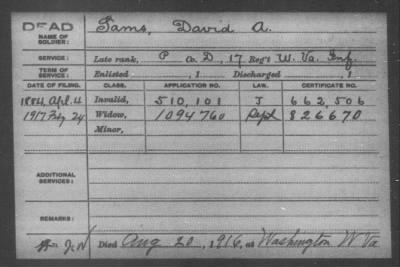 DEAD
NAME OF SOLDIER: Sams, David A.
SERVICE: Late rank, P Co. D, 17 Reg't W. Va. Inf.
TERM OF SERVICE: Enlisted , 1 Discharged , 1
DATE OF FILING. CLASS. APPLICATION NO. LAW. CERTIFICATE NO.
1884 Apl. 4 Invalid, 510,101 J 662,506
1917 Feby 24 Widow, 1094760 Sept 826670
Minor,
ADDITIONAL SERVICES:
REMARKS:
Died Aug 20, 1916, at Washington W Va